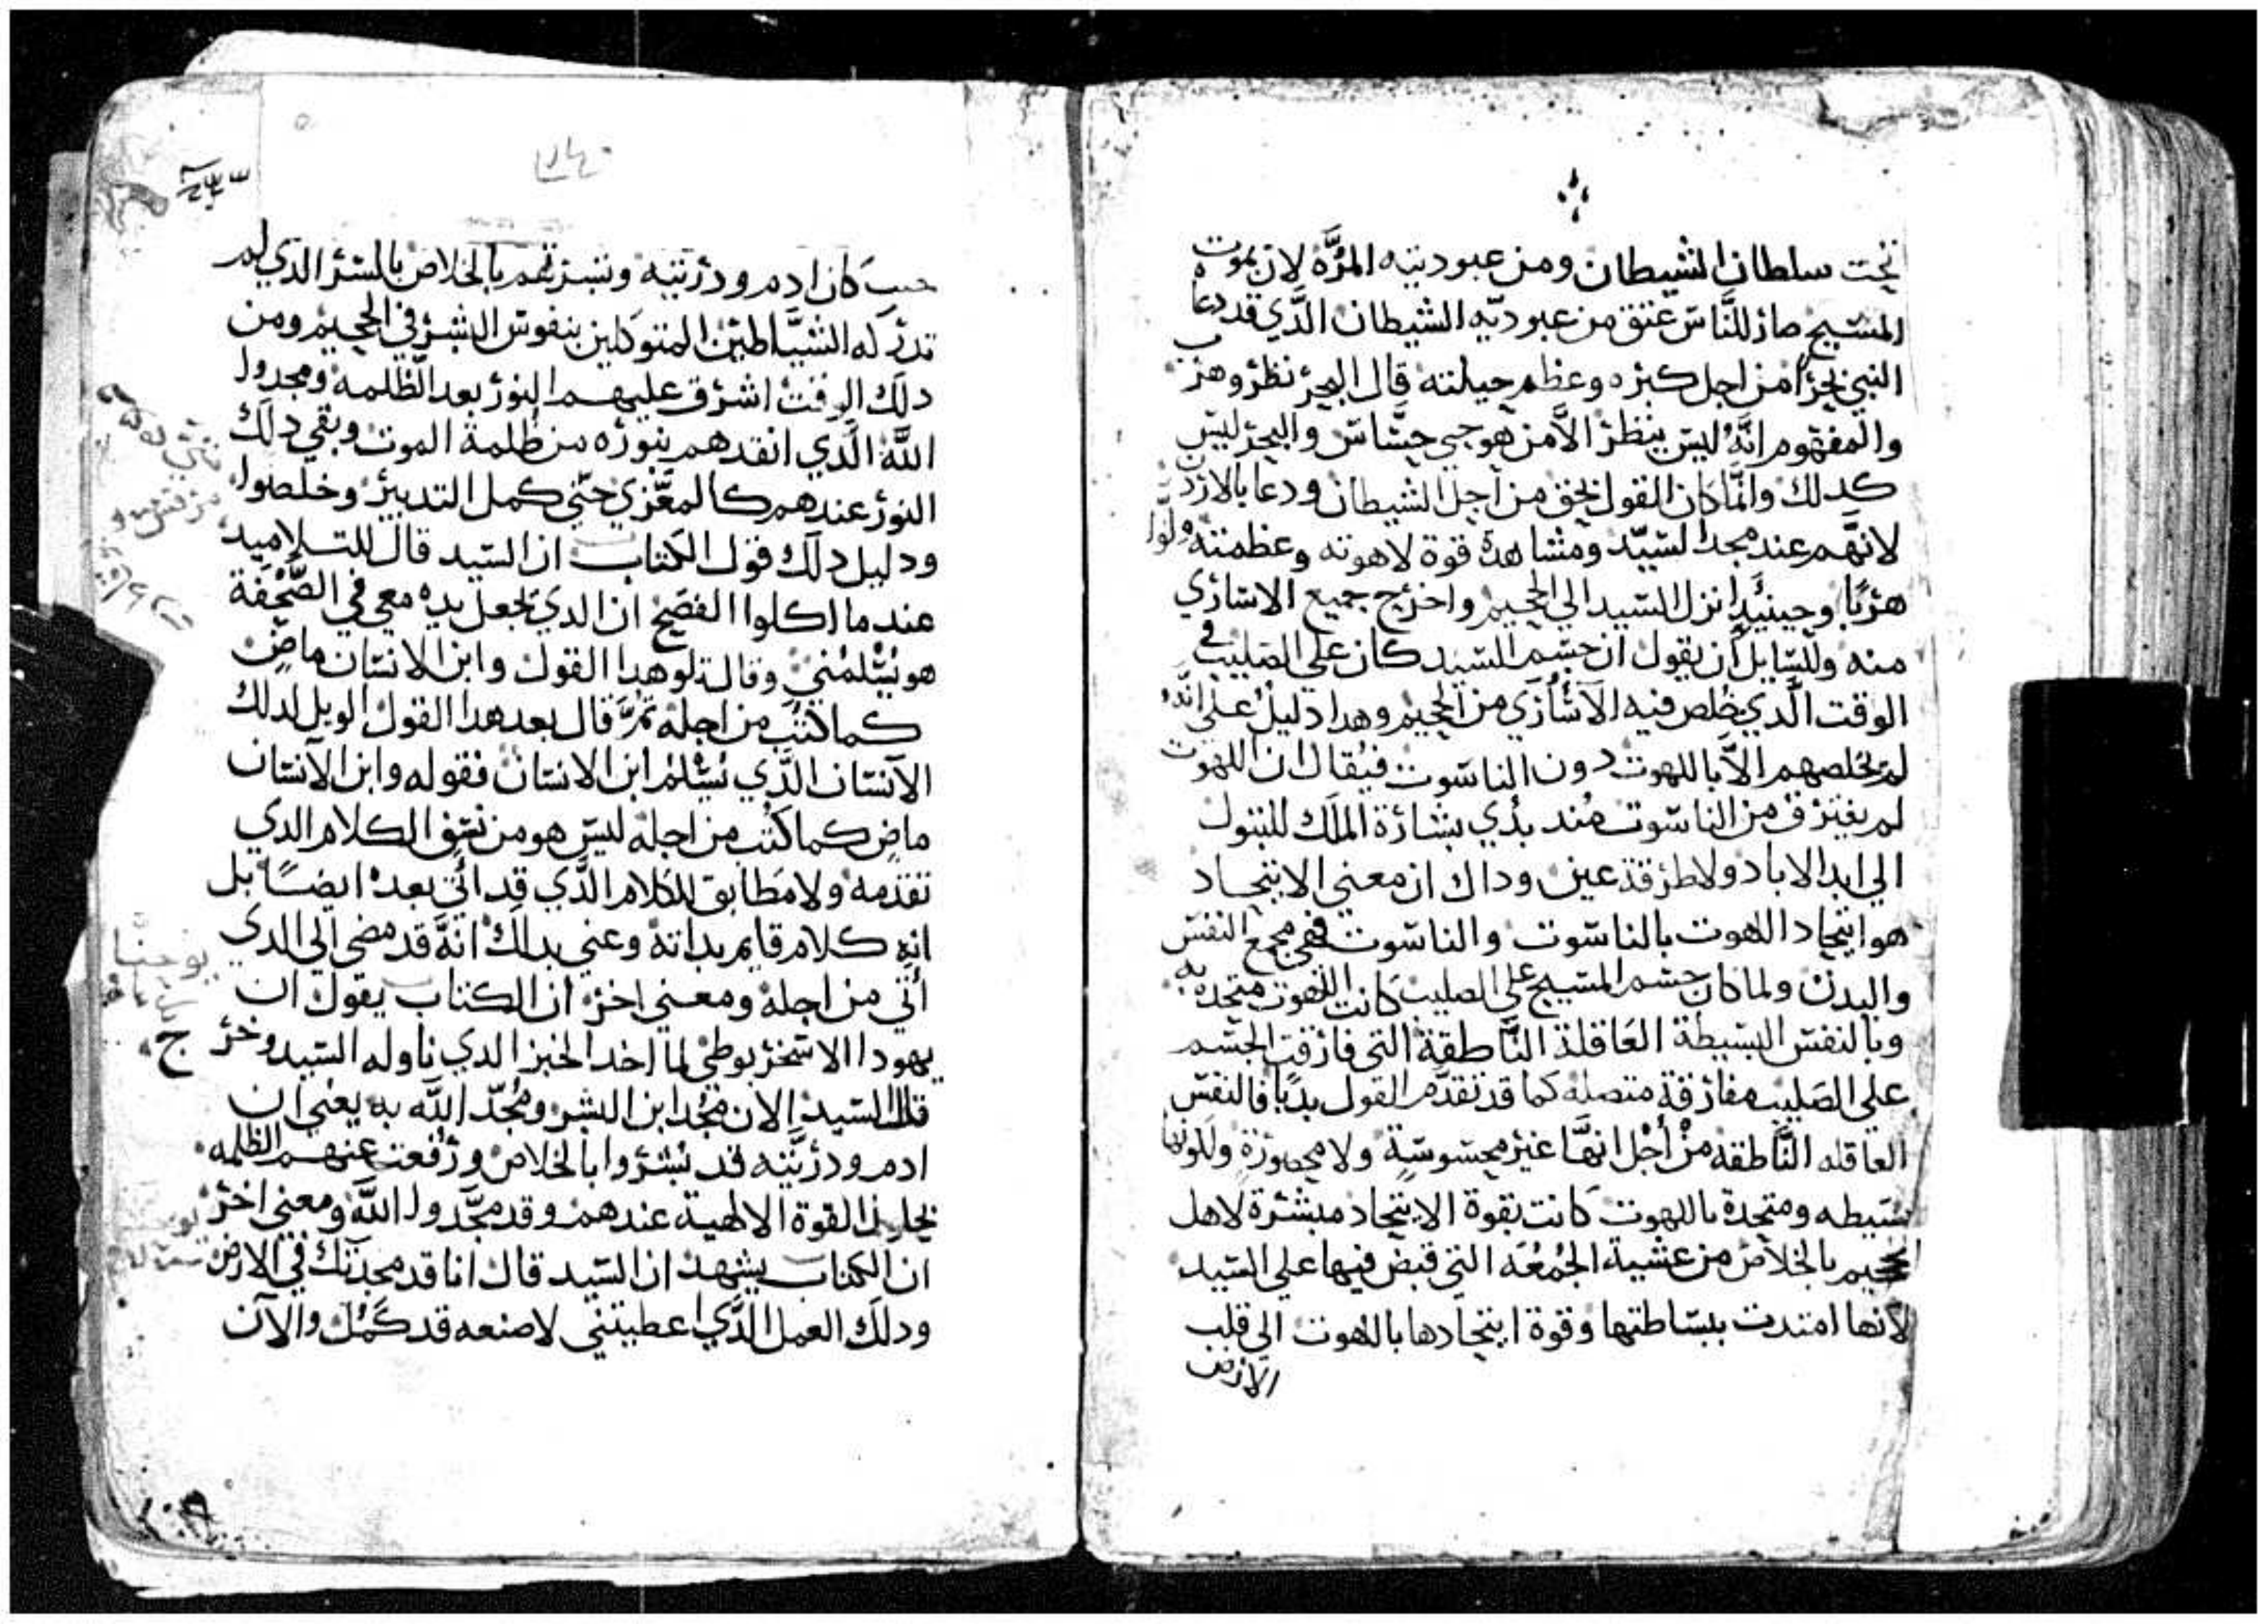 تحت سلطان الشيطان ومن عبوديته المرَّه لان بموت
المسيح صار للنَّاس عتق من عبوديّه الشيطان الَّذي قد دعاه
النبي بحرًا من اجل كبره وعظم حيلته قال البحر نظر وهرب
والمفهوم انَّه ليس ينظر الاَّ من هو حيي حسَّاس والبحر ليس
كدلك وانَّما كان القول بحق من اجل الشيطان ودعا بالاردن
لانهَّم عند مجد السيّد ومشاهدة قوة لاهوته وعظمته ولَّوا
هربًا وحينيَدٍ انزل السيد الي الجحيم واخرج جميع الاساري
منه وللسّايل أن يقول ان جسم السيد كان علي الصليب في
الوقت الَّدي خلص فيه الآسَارَي من الجحيم وهدا دليل علي انَّه
لم يخلصهم الاَّ باللهوت دون الناسوت فيُقال ان اللهوت
لم يفترق من الناسوت مُند بدُي بشارة الملَك للبتول
الي ابد الاباد ولا طرفة عين وداك ان معني الاتحاد
هو اتحاد اللاهوت بالناسوت والناسوت فهي مجمع النفس
والبدن ولما كان جسم المسيح علي الصليب كانت اللاهوت متحده به
وبالنفس البسيطة العَاقلة النَّاطقة التي فارقت الجسم
علي الصَليب مفارقة متصله كما قد تقدَّم القول بديًا فالنفس
العاقله النَّاطقة منْ أجْل انهَّا غير محسوسة ولا محصورة ولَكونها
بسيطه ومتحدة باللهوت كَانت بقوة الاتحاد مبشرة لاهل
الجحيم بالخلاص من عشية الجُمُعَه التي قبض فيها علي السيد
لانها امتدت ببساطتها وقوة اتحادها بالاهوت الي قلب
الارض
حيث كان ادم ودريته وبشرتهم بالخلاص بالسر الدَي لم
تدركه الشيَّاطين المتوكلين بنفوس البشر في الجحيم ومن
دلَك الوقت اشرق عليهم النور بعد الظلمه ومجدوا
اللَّه الَّدي انقدهم بنوره من ظلمة الموت وبقي دلك
النور عندهم كالمعَّزي حتّي كمل التدبير وخلصوا
ودليل دلَك قول الكتاب ان السّيد قال للتلاميد
عند ما اكلوا الفصح ان الدي يجعل يده معي في الصَّحْفَة
هو يُسْلمُني وقال تلو هدا القول وابن الانسان ماضٍ
كما كتب من اجله تمَّ قال بعد هدا القول الويل لدلك
الآنسان الدَّي يُسْلمُ ابن الانسان فقوله وابن الآنسان
ماضٍ كما كُتب من اجله ليس هو من نسق الكلام الدي
تقدمه ولا مطابق للكلام الدَّي قد أتي بعده ايضًا بل
انه كلام قايم بداته وعني بدلك انهَّ قد مضي الي الدي
أتي من اجله ومعني اخر ان الكتاب يقول ان
يهودا الاسخريوطي لما اخد الخبز الدي ناوله السيد وخرج
قال السيد الان مُجد ابن البشر ومُجّد اللَّه به يعني ان
ادم ودريَّته قد بُشروا بالخلاص ورُفعت عنهم الظلمه
بحلول القوة الالهية عندهم وقد مجَّدوا اللَّه ومعني اخر
ان الكتاب يشهد ان السّيد قال انا قد مجدتك في الارض
ودلَك العمل الدَّي اعطيتني لاصنعه قد كَمُل والآن
يوحنَّا